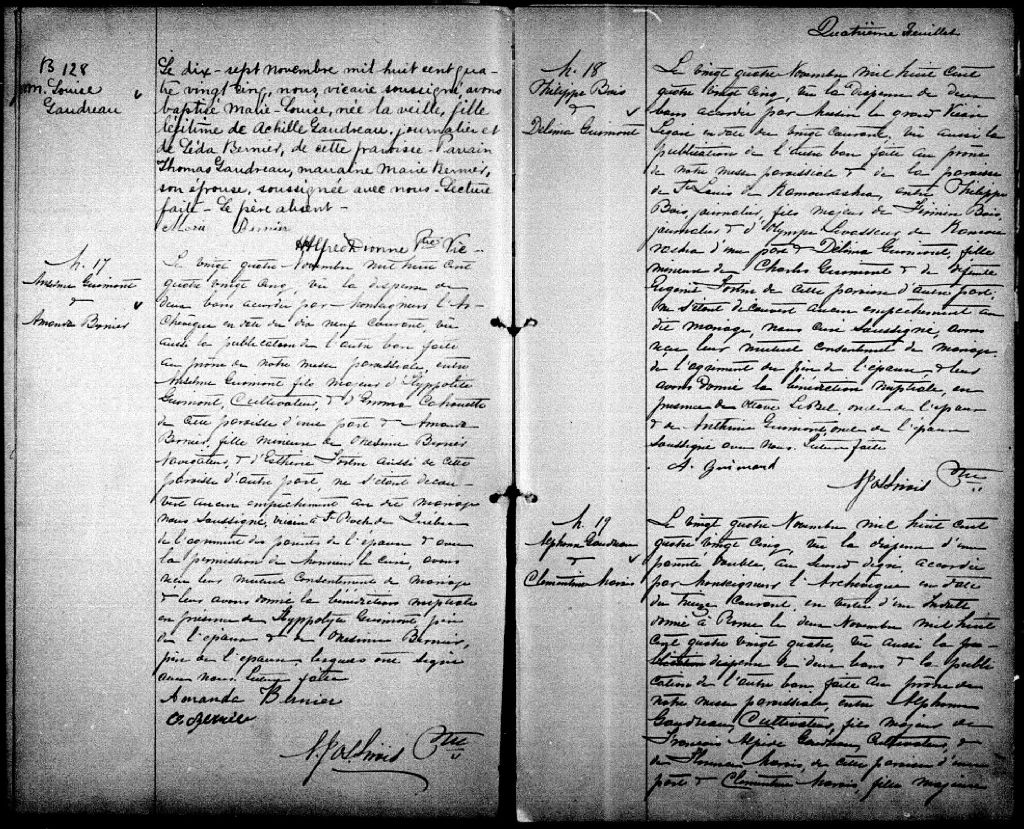 B 128
M. Louise
Gaudreau
Le dix-sept novembre mil huit cent qua-
tre vingt cinq, nous, vicaire soussigné avons
baptisé Marie-Louise, née la veille, fille
légitime de Achille Gaudreau, journalier et
de Léda Bernier, de cette paroisse. Parrain
Thomas Gaudreau, marraine Marie Bernier,
son épouse, soussignée avec nous. Lecture
faite - Le père absent -
Marie Bernier
Alfred Dionne Ptre Vic-
M. 17
Anselme Guimont
&
Amanda Bernier
Le vingt quatre Novembre mil huit cent
quatre vingt cinq, vu la dispense de
deux bans accordée par Monseigneur l'Ar-
chevêque en date du dix neuf courant, vu
aussi la publication de l'autre ban faite
au prône de notre messe paroissiale entre
Anselme Guimont fils majeur d'Hyppolite
Guimont, Cultivateur, & d'Emma
de cette paroisse d'une part & Amanda
Bernier, fille mineure de Onesime Bernier
Navigateur, & d'Esther Fortin aussi de cette
paroisse d'autre part, ne s'étant décou-
vert aucun empêchement au dit mariage
Nous Soussigné, vicaire à St Roch de Québec
de l'
la permission de Monsieur le Curé, avons
reçu leur mutuel Consentement de mariage
& leur avons donné la bénédiction nuptiale
en présence de Hyppolyte Guimont, père
de l'époux & de Onesime Bernier,
père de l'épouse lesquels ont signé
avec nous. Lecture faite
Amanda Bernier
O. Bernier
Ptre
Quatrième Feuillet
M. 18
Philippe Bois
&
Délima Guimont
Le vingt quatre Novembre mil huit cent
quatre vingt cinq, vu la dispense de deux
bans accordée par Messire le grand Vicaire
Légaré en date du vingt courant, vu aussi la
publication de l'autre ban faite au prône
de notre messe paroissiale & de la paroisse
de St Louis de Kamouraska, entre Philippe
Bois, journalier, fils majeur de Firmin Bois,
journalier & d'Olympe Levasseur de Kamou-
raska d'une part & Délima Guimont, fille
mineure de Charles Guimont & de défunte
Eugénie Fortin de cette paroisse d'autre part;
ne s'étant découvert aucun empêchement au
dit mariage, Nous Curé Soussigné, avons
reçu leur mutuel consentement de mariage
de l'agrément du père de l'épouse & leur
avons donné la bénédiction nuptiale, en
présence de Octave LeBel, oncle de l'époux
& de Anthime Guimont, oncle de l'épouse
Soussigné avec nous. Lecture faite
A. Guimond
Ptre
M. 19
Alphonse Gaudreau
&
Clémentine Marois
Le vingt quatre Novembre mil huit cent
quatre vingt cinq, vu la dispense d'une
parenté double, au second degré, accordée
par Monseigneur l'Archevêque en date
du treize Courant, en vertu d'un Indult
donné à Rome le deux Novembre mil huit
cent quatre vingt quatre, vu aussi la
dispense de deux bans & la publi-
cation de l'autre ban faite au prône de
notre messe paroissiale, entre Alphonse
Gaudreau, Cultivateur, fils majeur de
François Gaudreau, Cultivateur, &
de Marois, de cette paroisse d'une
part & Clémentine Marois, fille majeure